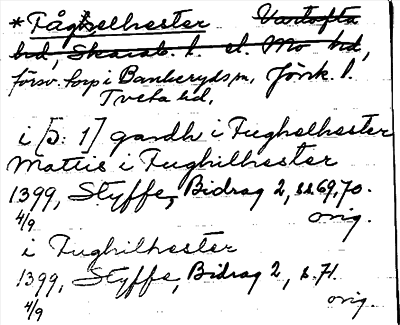 *Fågelhester Vartofta
hd, Skarab. l. el. Mo hd,
försv. torp i Bankeryds sn, Jönk. l.
Tveta hd.
i [5: 1] gardh i Fughelhester
Mattis i Fughilhester
1399, Styffe, Bidrag 2, s. 69, 70.
4/9 orig.
i Fughilhester
1399, Styffe, Bidrag 2, s. 71.
4/9 orig.